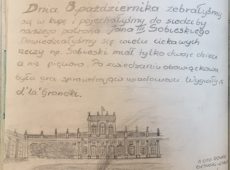 Dnia 8 października zebraliśmy
się w kupę i pojechaliśmy do siedziby
naszego patrona Jana III Sobieskiego
Dowiedzieliśmy się wielu ciekawych
rzeczy np. Sobieski miał tylko dwoje dzieci
a nie pięcioro. Po zwiedzaniu obowiązkowa
była gra sprawdzająca wiadomości. Wygrały